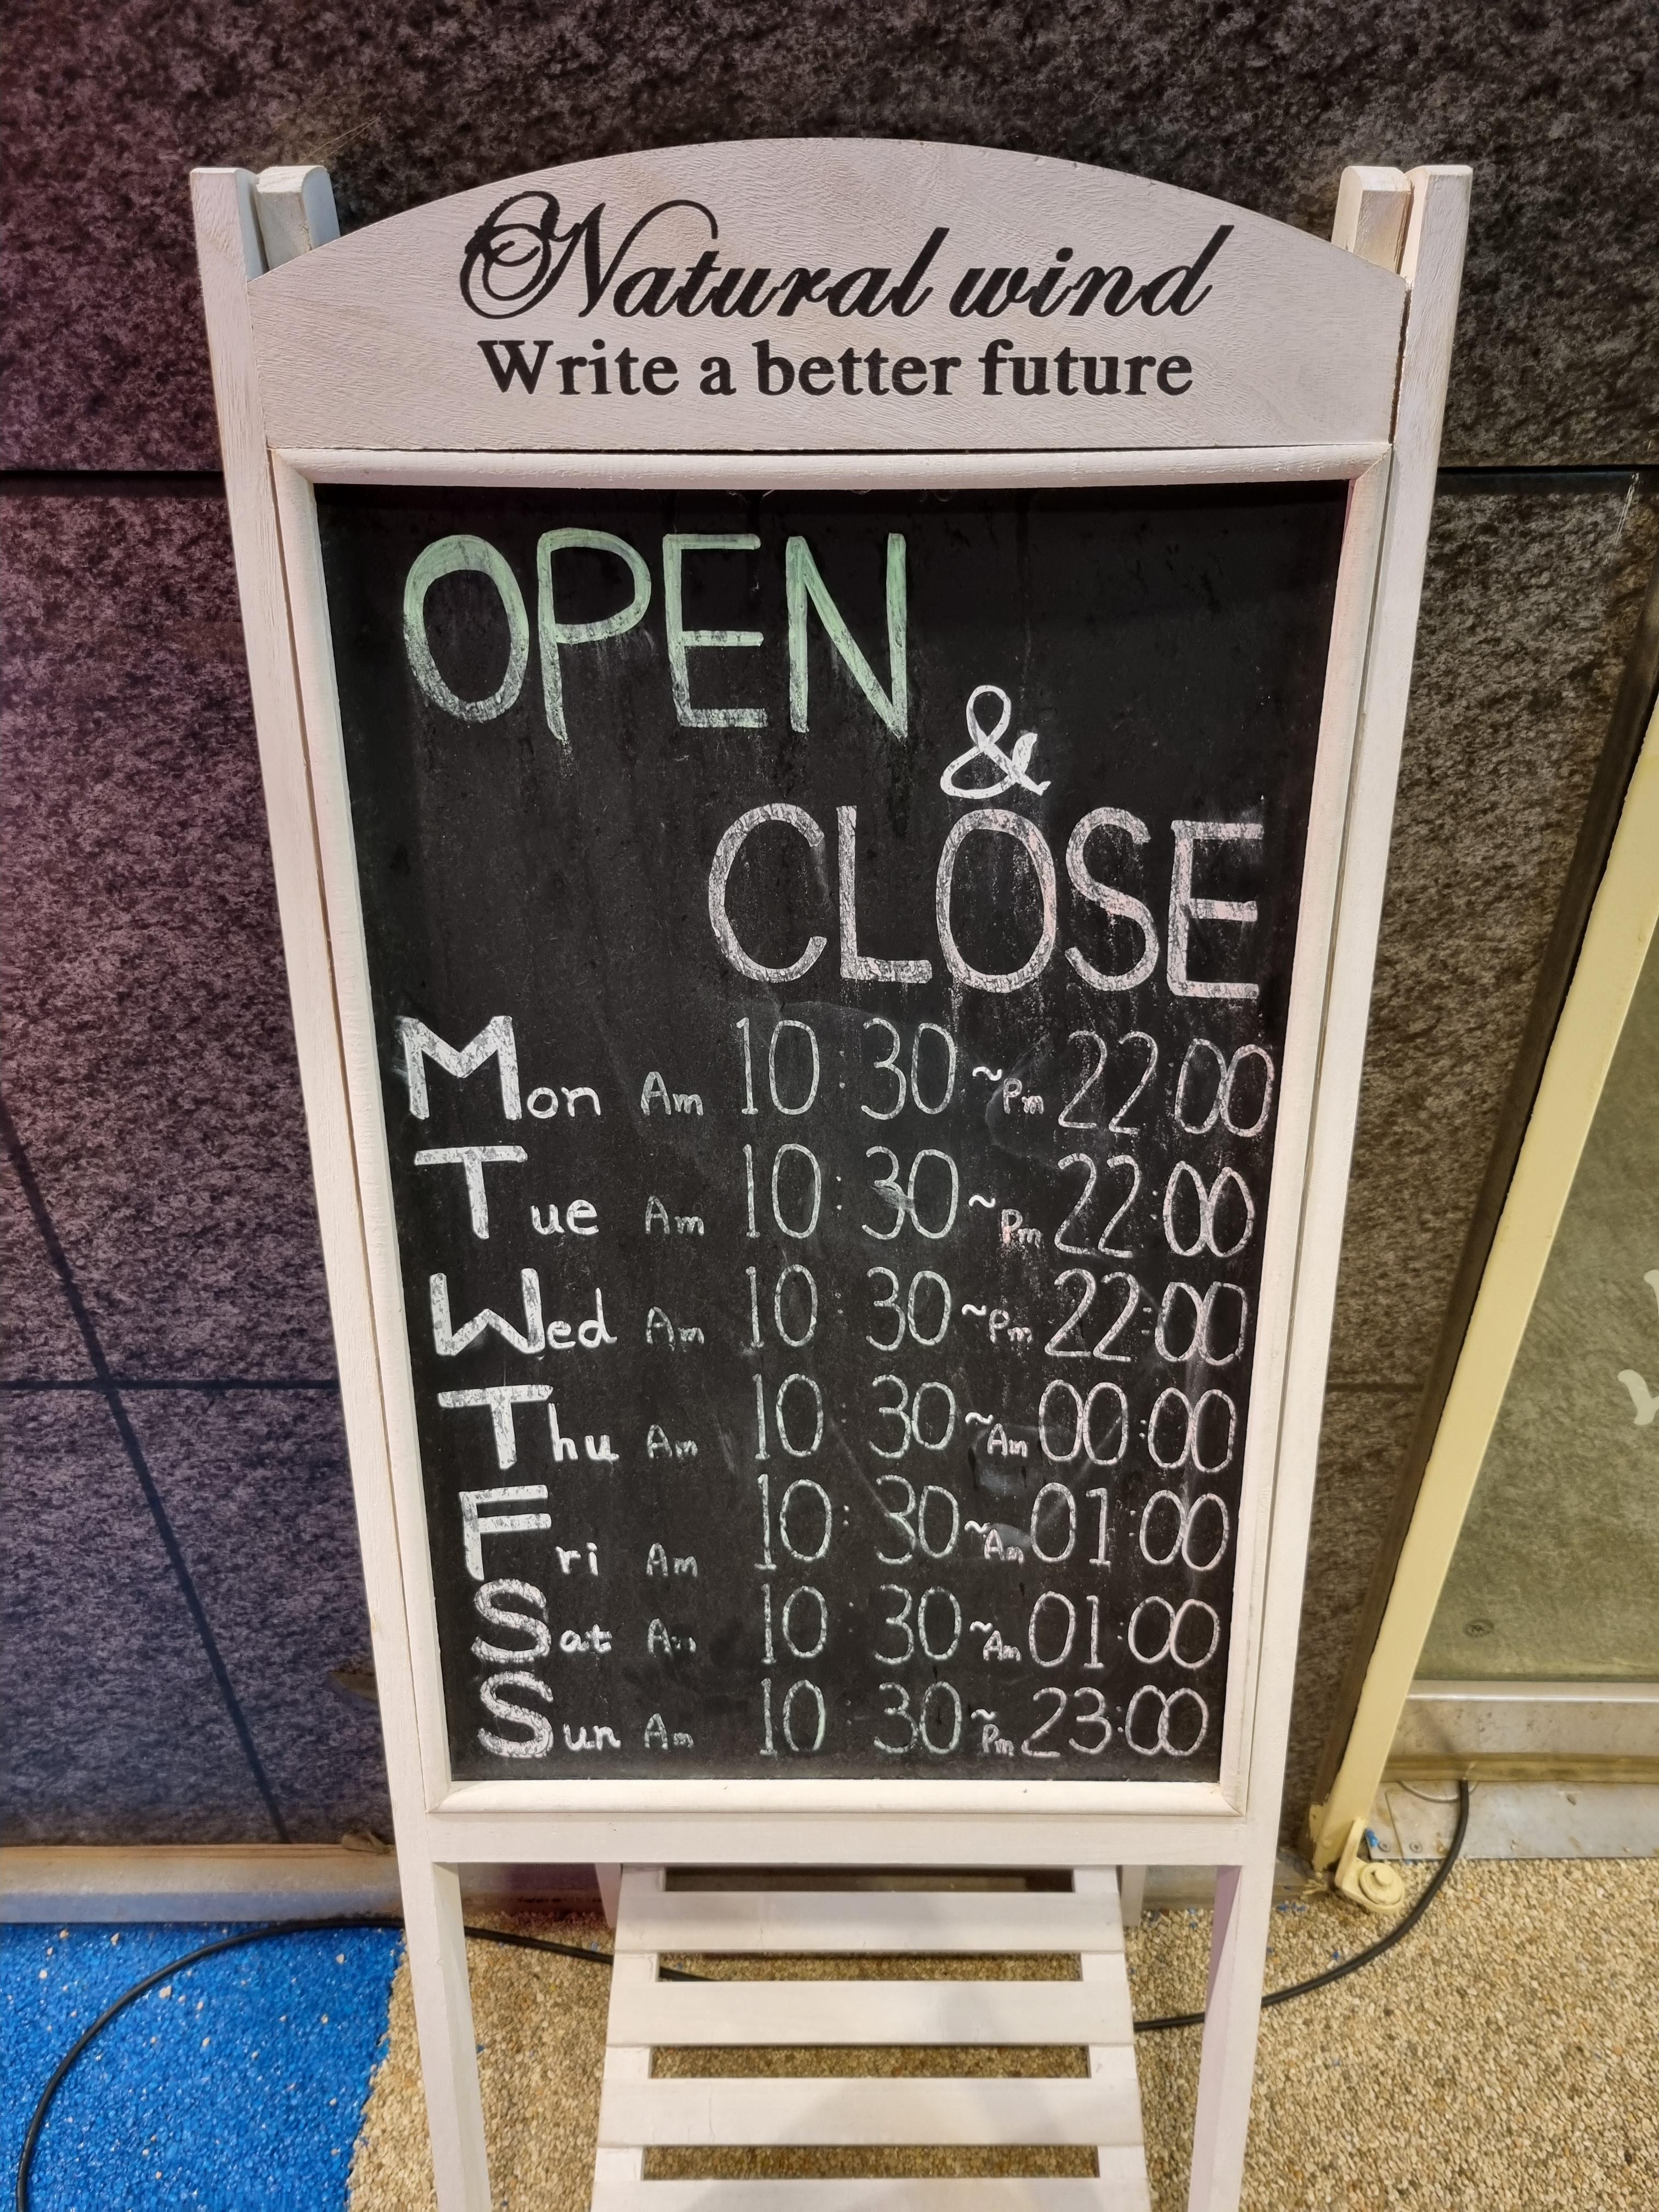 Natural wind
Write a better future
OPEN
&
CLOSE
Mon Am 10:30 ~Pm 22:00
Tue Am 10:30 ~Pm 22:00
Wed Am 10 30 ~Pm 22:00
Thu Am 10:30 ~Am 00:00
Fri Am 10:30 ~Am 01:00
Sat Am 10:30 ~Am 01:00
Sun Am 10:30 ~Pm 23:00